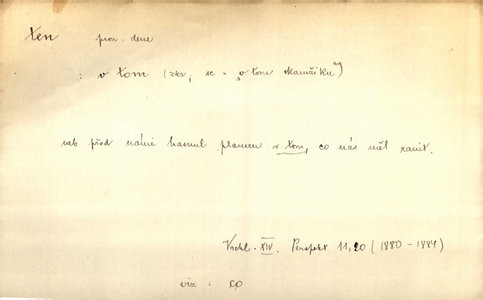 ten pron. dem
: v tom (zkr, sc. „v tom okamžiku“)
neb před námi hasnul plamen v tom, co nás měl ranit.
Vrchl. XIV. Perspekt 11,20 (1880-1884)
viz : co